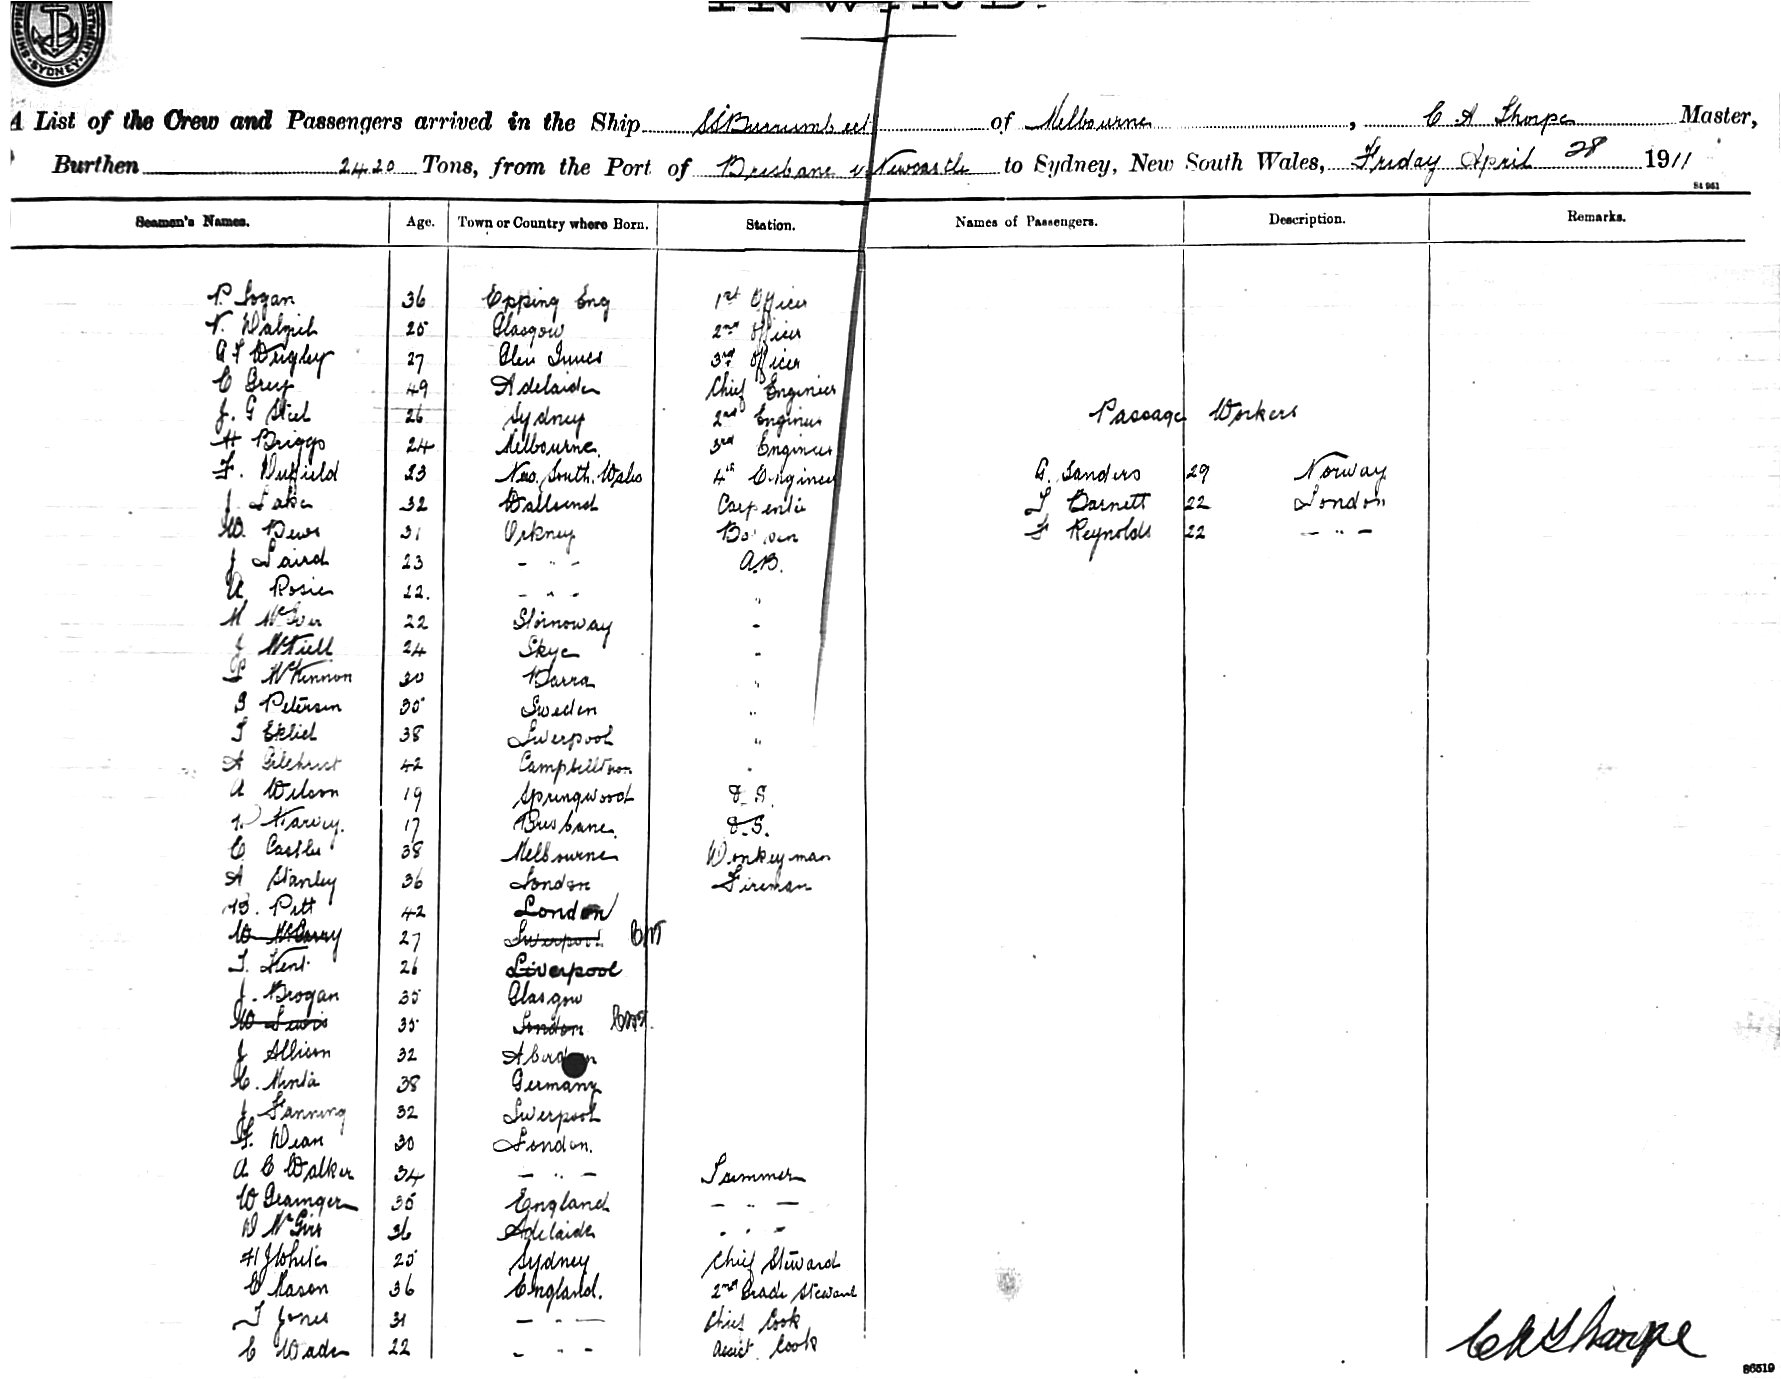 SHIPPING DEPARTMENT SYDNEY
INWARD.
A List of the Crew and Passengers arrived in the Ship SS Burrumbeet of Melbourne, C A Thorpe Master,
Burthen 2420 Tons, from the Port of Brisbane v Newcastle to Sydney, New South Wales, Friday April 28 1911
84 961
Seamen's Names. Age. Town or Country where Born. Station. Names of Passengers. Description. Remarks.
P. Logan 36 Epping Eng 1st Officer
25 Glasgow 2nd Officer
A F Wrigley 27 Glen Innes 3rd Officer
C Grey 49 Adelaide Chief Engineer
J. G Steel 26 Sydney 2nd Engineer Passage Workers
H Briggs 24 Melbourne 3rd Engineer
F. Duffield 23 New South Wales 4th Engineer A. Sanders 29 Norway
J. Lake 32 Wallsend Carpenter T Barnett 22 London
W. Dews 31 Orkney Bosun F Reynolds 22 – " –
J Laird 23 – " – A.B.
A Rosie 22. – " – "
M McIver 22 Stornoway "
J McNeill 24 Skye "
P McKinnon 30 Barra "
G Petersen 35 Sweden "
T 38 Liverpool "
A Gilchrist 42 Campbelltown "
A Wilson 19 Springwood O.S.
Harvey. 17 Brisbane O.S.
C Castles 38 Melbourne Donkeyman
A Stanley 36 London Fireman
B. Pitt 42 London
W McGarry 27 Liverpool
T. Kent 26 Liverpool
J. Brogan 35 Glasgow
W Lewis 35 London
J Allison 32 Aberdeen
38 Germany
J Fanning 32 Liverpool
F. Dean 30 London.
A C Walker 34 – " – Trimmer
W Grainger 35 England – " –
D McGirr 36 Adelaide – " –
H J White 25 Sydney Chief Steward
E Mason 36 England. 2nd Grade Steward
T Jones 31 – " – Chief Cook
C Wade 22 – " – Assist. Cook
C A Thorpe
86519